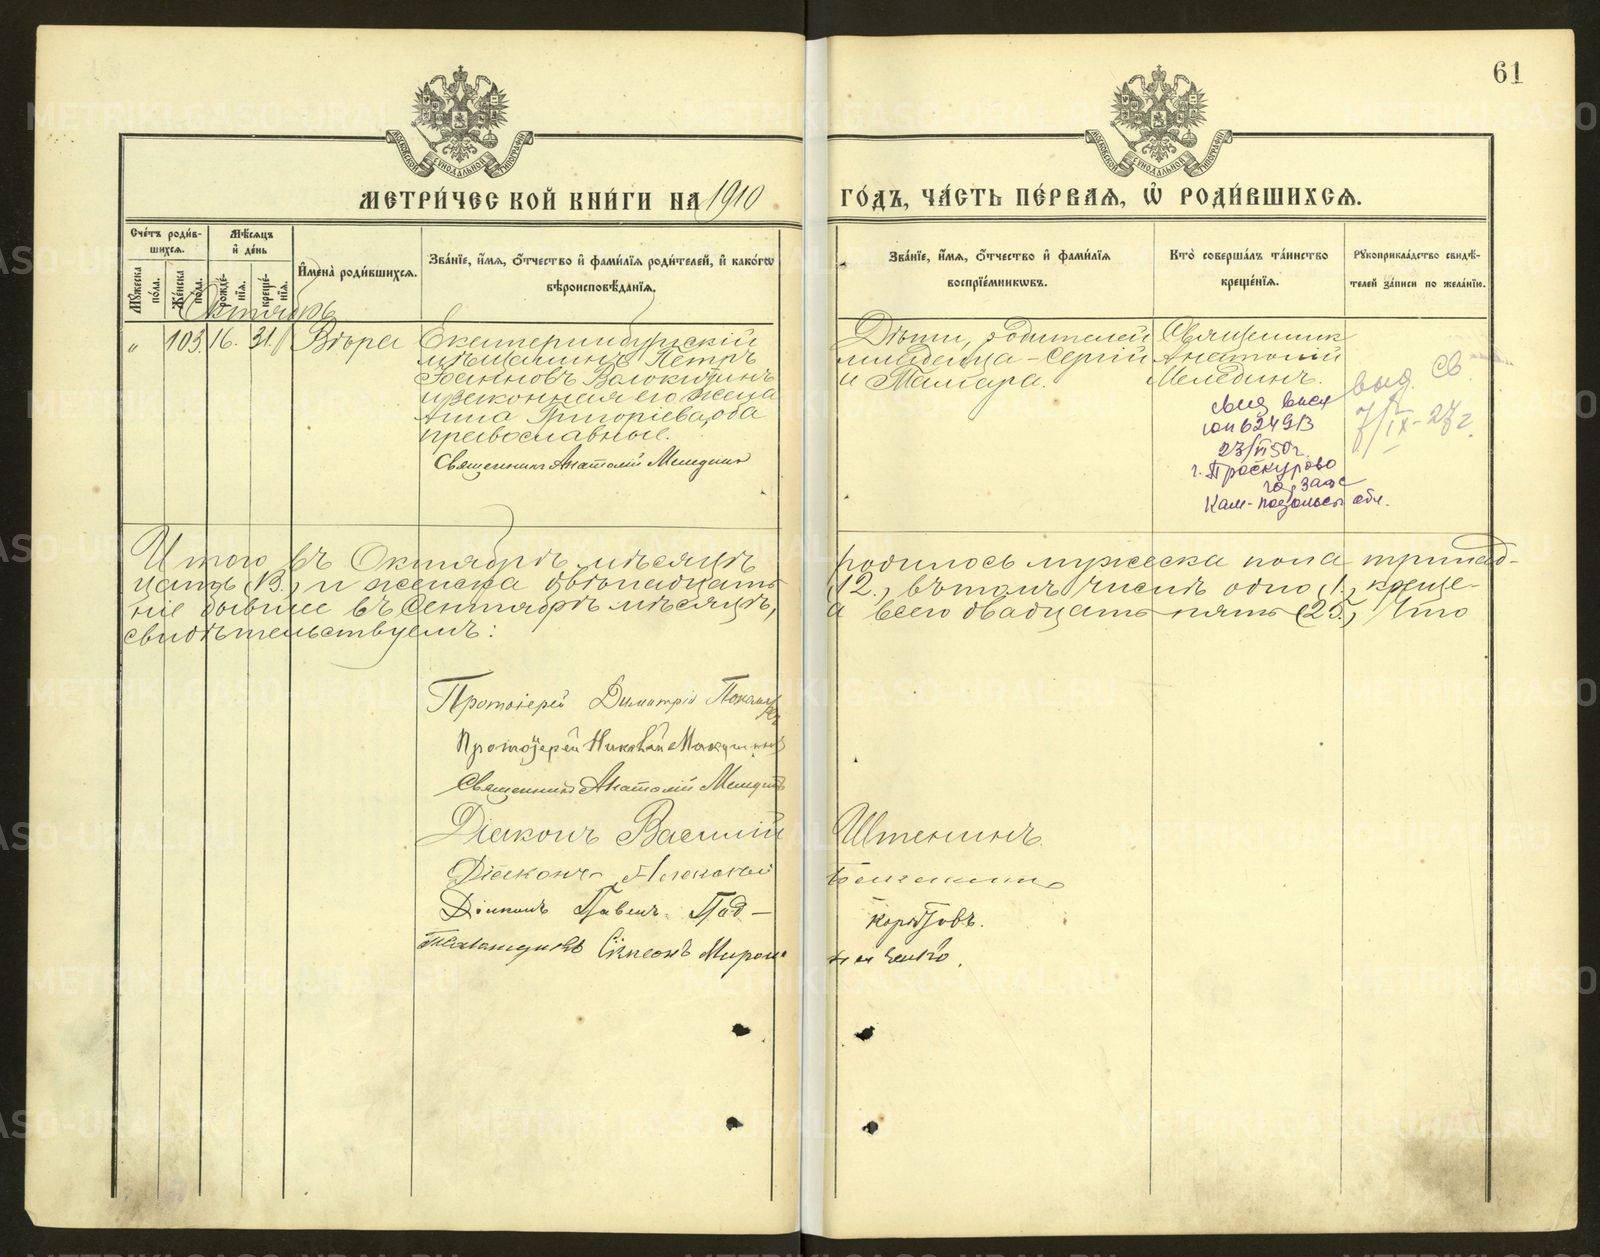 61
МЕТРИ́ЧЕСКОЙ КНИ́ГИ НА 1910 ГО́ДЪ, ЧА́СТЬ ПЕ́РВАЯ, Ѿ РОДИ́ВШИХСЯ.
Сче́тъ роди́вшихся.
Му́жеска по́ла.
Же́нска по́ла.
Мѣ́сяцъ и҆ де́нь
рожде́нїя.
креще́нїя.
И҆мена̀ роди́вшихся.
Зва́нїе, и҆́мя, ѻ҆́тчество и҆ фами́лїя роди́телей, и҆ како́гѡ
вѣроисповѣ́данїя.
Зва́нїе, и҆́мя, ѻ҆́тчество и҆ фами́лїя
воспрїе́мникѡвъ.
Кто̀ соверша́лъ та́инство
креще́нїя.
Рꙋкоприкла́дство свидѣ́-
телей за́писи по жела́нїю.
Октябрь
" 103. 16. 31. Вѣра
Екатеринбургскій
мѣщанинъ Петръ
Іоанновъ Волокитинъ
и законная его жена
Анна Григоріева, оба
православные.
Священникъ Анатолій Меледин
Дѣти, родителей
младенца - Сергій
и Тамара.
Священник
Анатолій
Меледин.
выд. св
7/IX-27 г.
23/VI 50 г.
г. Проскурово
гор. загс
Кам-Подольск обл.
Итого въ Октябрѣ мѣсяцѣ родилось мужеска пола тринад-
цать (13.) и женска двѣнадцать (12.), въ томъ числѣ одно (1.), креще-
ніе бывшее въ Сентябрѣ мѣсяцѣ, а всего двадцать пять (25.), Что
свидѣтельствуемъ:
Протоіерей Димитрій
Протоіерей Николай
Священникъ Анатолій Меледин
Діаконъ Василій Штенинъ.
Діаконъ Алексѣй
Діаконъ Павелъ Под-
корытовъ.
Псаломщикъ Сімеонъ Мирош
ниченко.